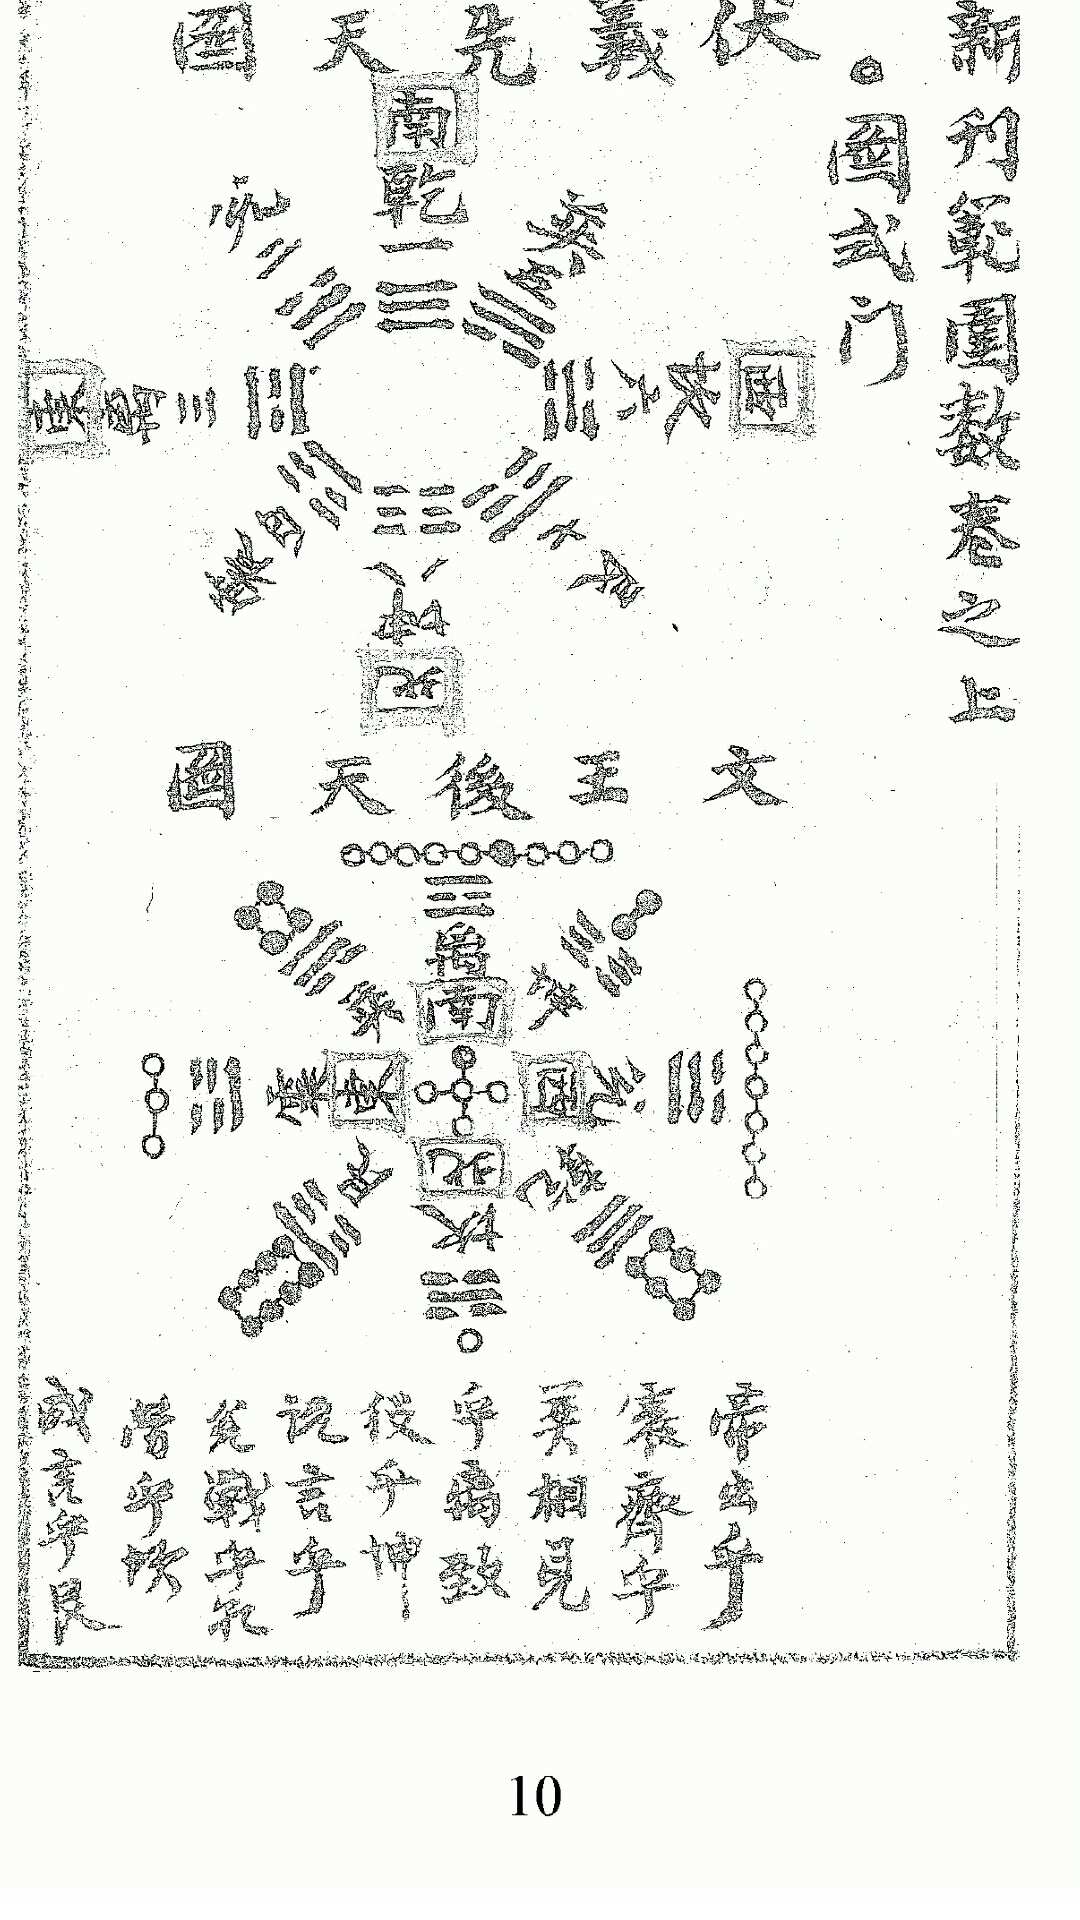 新刊範圍數卷之上
圖式门
伏義先天圖
南
乾一
兌二
三
巽五
坎六
西
東
震四
艮七
坤八
北
文王後天圖
離
南
巽
坤
震
東
西
兌
艮
北
坎
乾
帝出乎
震齊乎
巽相見
乎离致
役乎坤
說言乎
兌戰乎乹
劳乎坎
成言乎艮
10